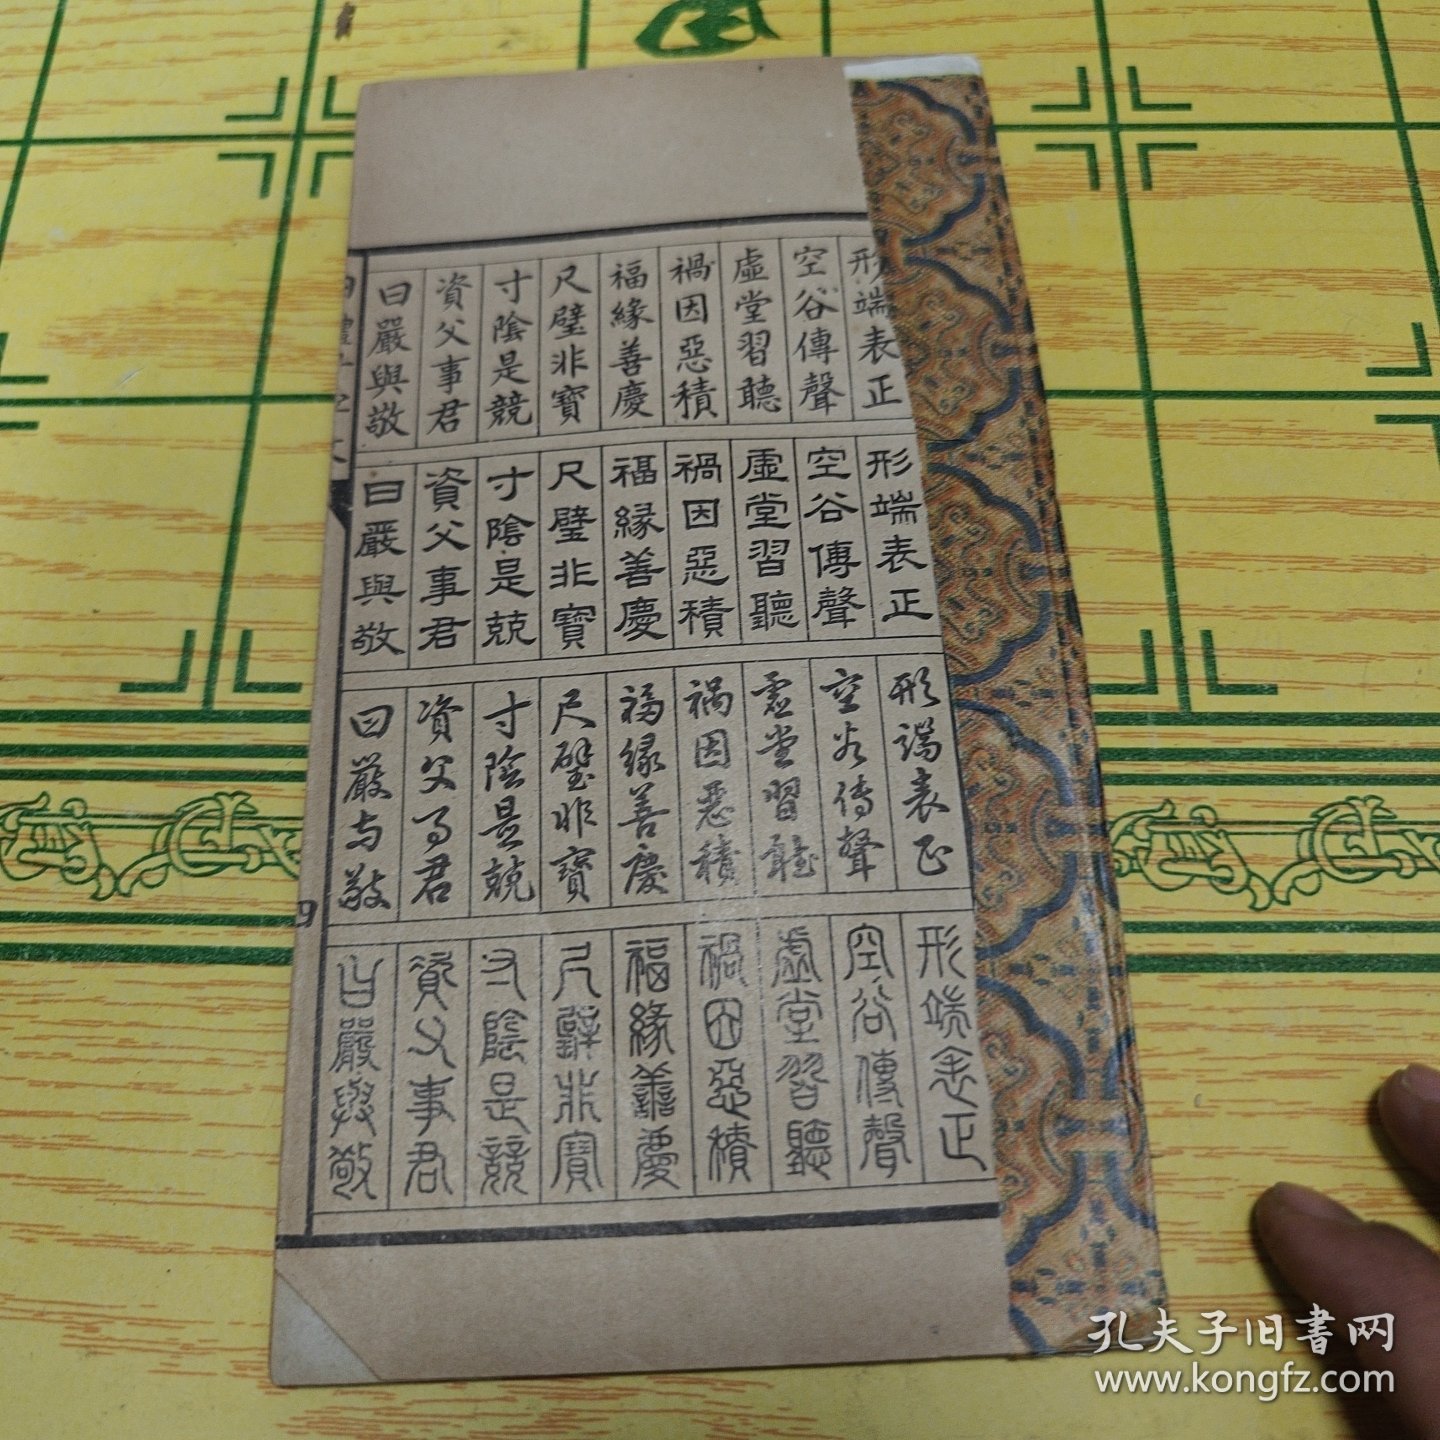 形端表正
空谷傳聲
虛堂習聽
禍因惡積
福緣善慶
尺璧非寶
寸陰是競
資父事君
曰嚴與敬
形端表正
空谷傳聲
虛堂習聽
禍因惡積
福緣善慶
尺璧非寶
寸陰是競
資父事君
曰嚴與敬
形端表正
空谷傳聲
虛堂習聽
禍因惡積
福緣善慶
尺璧非寶
寸陰是競
資父事君
曰嚴与敬
形端表正
空谷傳聲
虛堂習聽
禍因惡積
福緣善慶
尺璧非寶
寸陰是競
資父事君
曰嚴與敬
孔夫子旧書网
www.kongfz.com